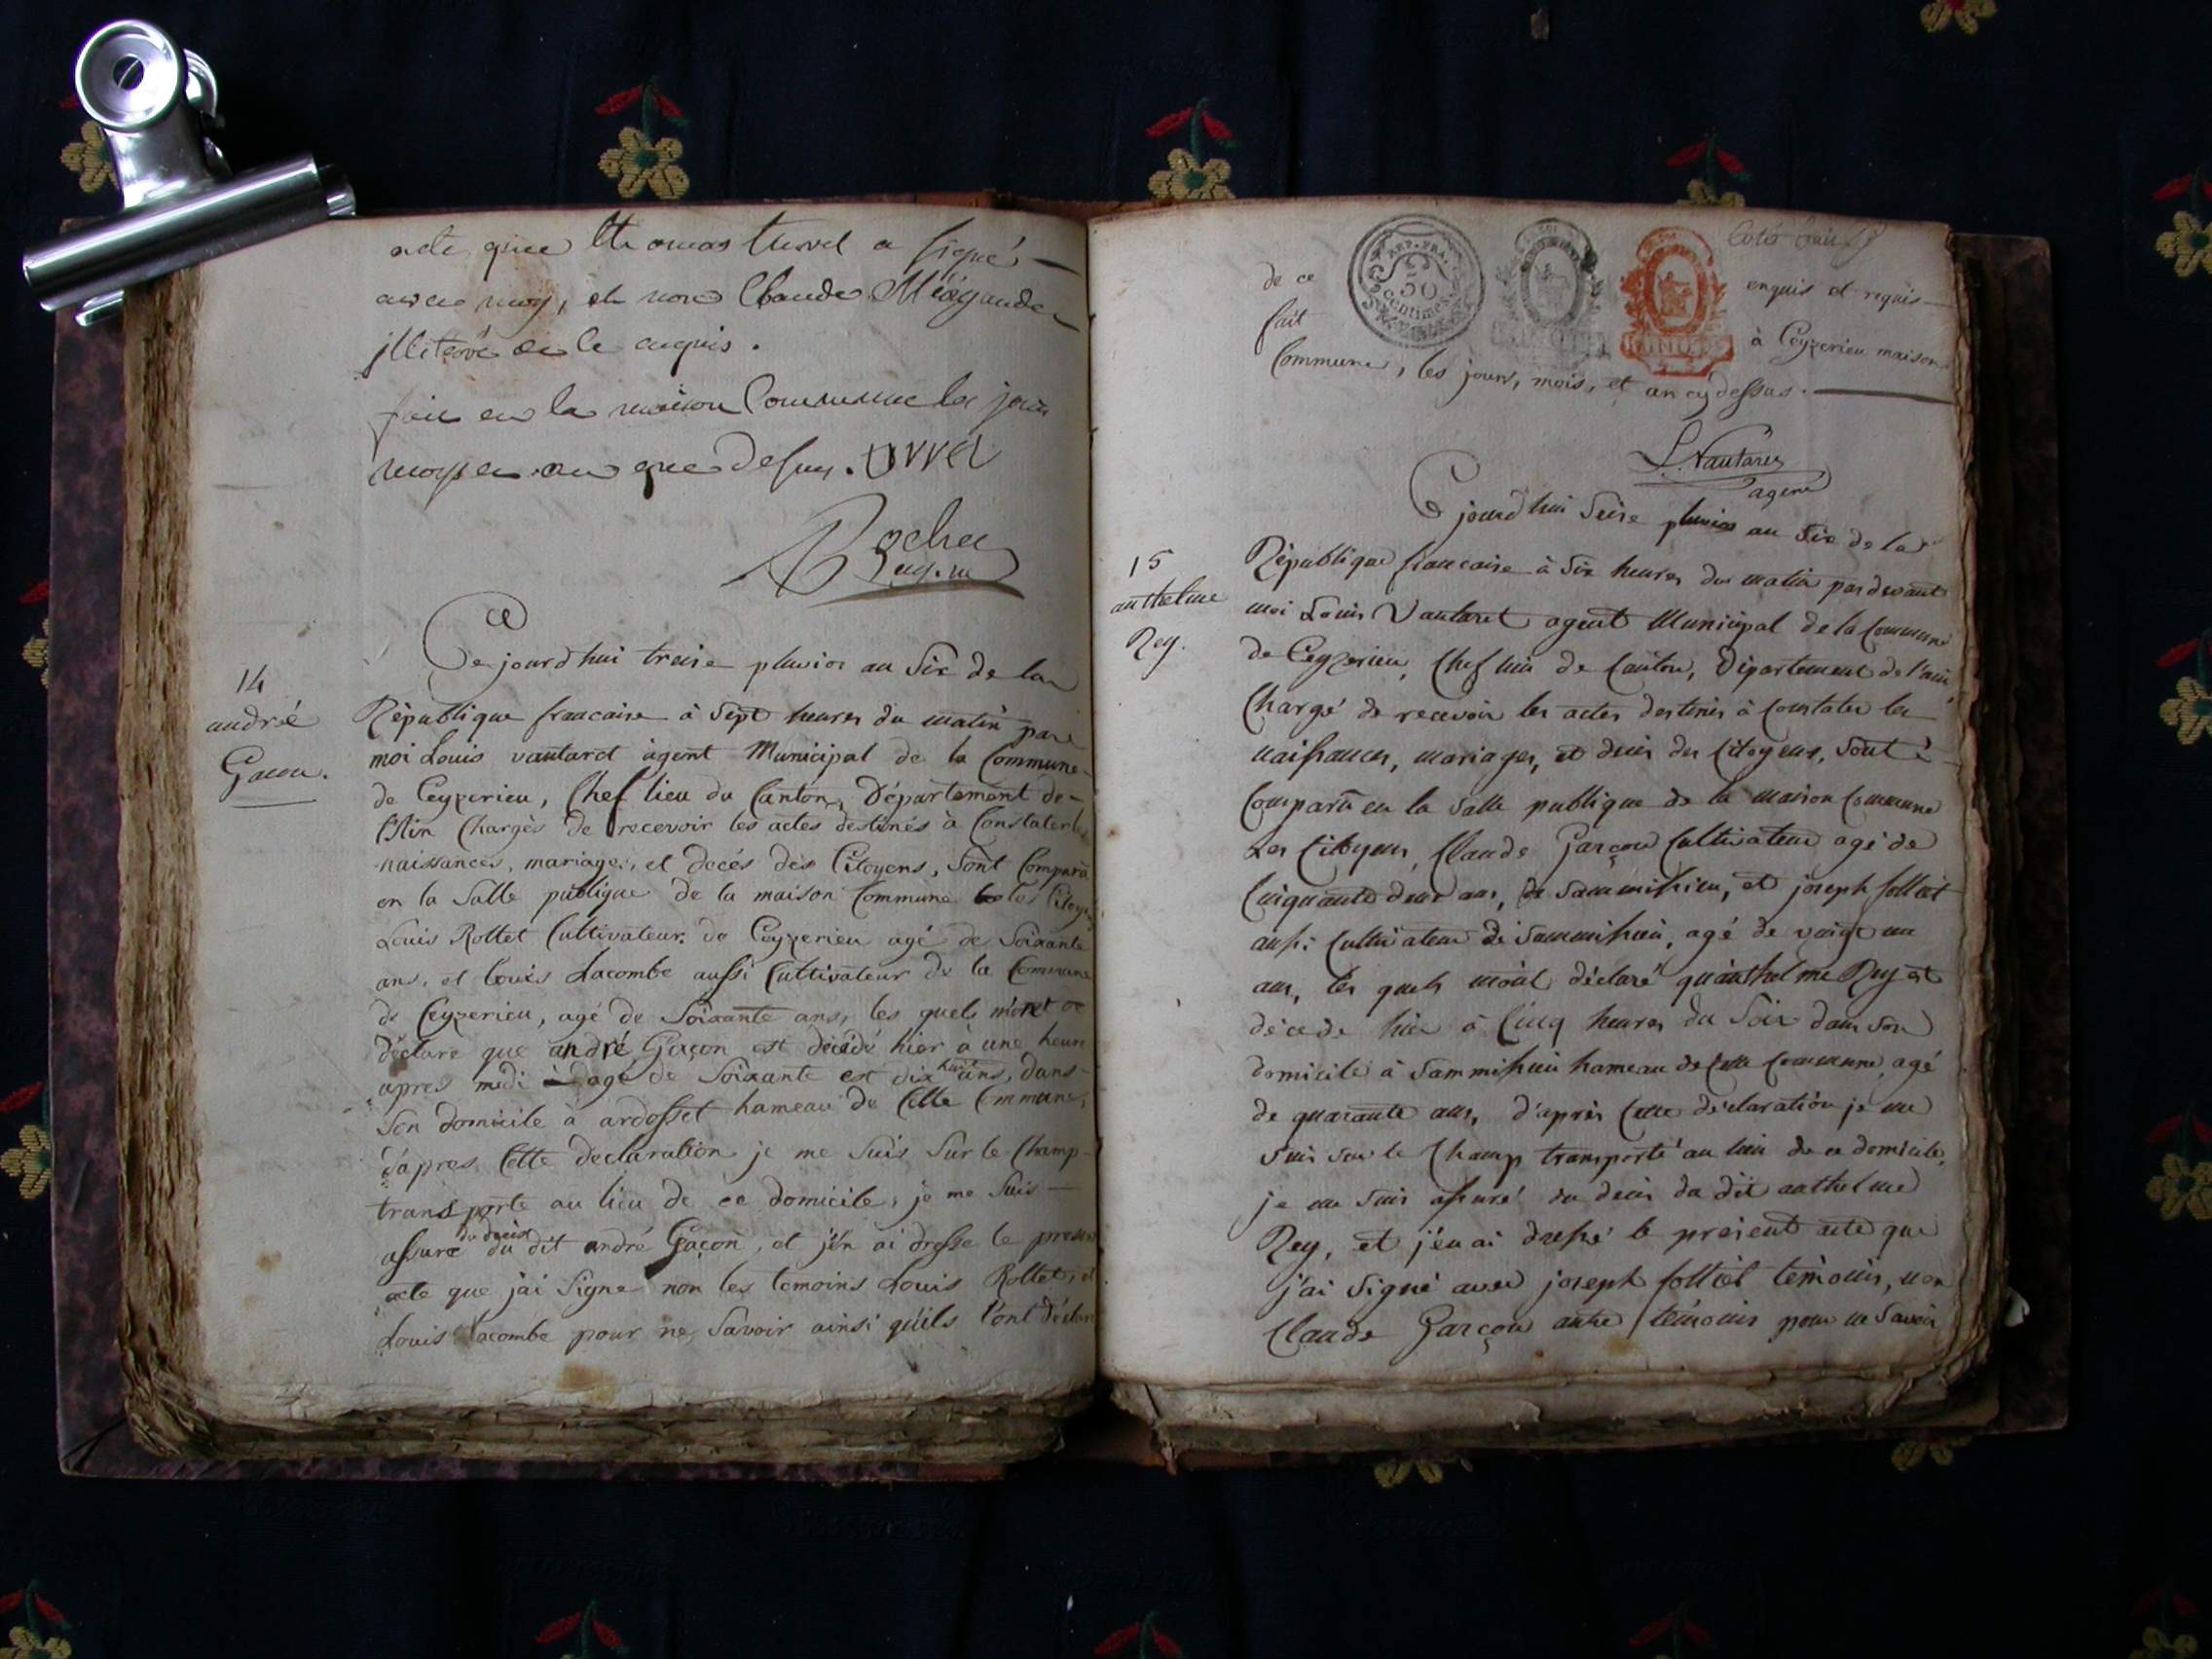 acte que thomas turrel a signé
avec moy, et non Claude
illiteré de ce enquis.
fait en la maison Commune les jour
mois et an que dessus. turrel
Rochex
agent
14
andré
Gacon.
Ce
Cejourd'hui treise pluvios an Six de la
République francaise à Sept heures du matin par
moi Louis vautaret agent Municipal de la Commune
de Ceyzerieu, Chef lieu du Canton, Département de
l'Ain Chargés de recevoir les actes destinés à Constater les
naissances, mariages, et decés des Citoyens, Sont Comparu
en la Salle publique de la maison Commune les Citoyens
Louis Rottet Cultivateur de Ceyzerieu agé de Soixante
ans, et Louis Lacombe aussi Cultivateur de la Commune
de Ceyzerieu, agé de Soixante ans, les quels m'ont
déclaré que andré Gaçon est décédé hier à une heure
apres midi agé de Soixante et dix huit ans, dans
Son domicile à ardosset hameau de Cette Commune,
d'apres Cette declaration je me Suis Sur le Champ
transporte au lieu de ce domicile, je me Suis
assuré du decés du dit andré Gaçon, et j'én ai dresse le present
acte que j'ai Signe non les temoins Louis Rottet, et
Louis Lacombe pour ne, Savoir ainsi qu'ils l'ont déclaré
REP. FRA.
50
centimes
de ce enquis et requis
fait à Ceyzerieu maison
Commune, les jours, mois, et an cy dessus.
L. Vautaret
agent
15
anthelme
Rey.
Cejourd'hui Seise pluvios an Six de la
République francaise à Six heures du matin pardevant
moi Louis Vautaret agent Municipal de la Commune
de Ceyzerieu, Chef lieu de Canton, Département de l'ain
Chargé de recevoir les actes destinés à Constater les
naissances, mariages, et decés des Citoyens, Sont
Comparu en la Salle publique de la maison Commune
Les Citoyens Claude Garçon Cultivateur agé de
Cinquante deux ans, de Sammissieu, et joseph folliet
aussi Cultivateur de Sammissieu, agé de vaingt un
ans, les quels m'ont déclaré qu'anthelme Rey est
décede hier à Cinq heures du Soir dans Son
domicile à Sammissieu hameau de Cette Commune, agé
de quarante ans, d'aprés Cette déclaration je me
Suis Sur le Champ transporté au lieu de ce domicile,
je me Suis assuré du decés du dit anthelme
Rey, et j'en ai dressé le present acte que
j'ai Signé avec joseph folliet témoin, non
Claude Garçon autre témoin pour ne Savoir